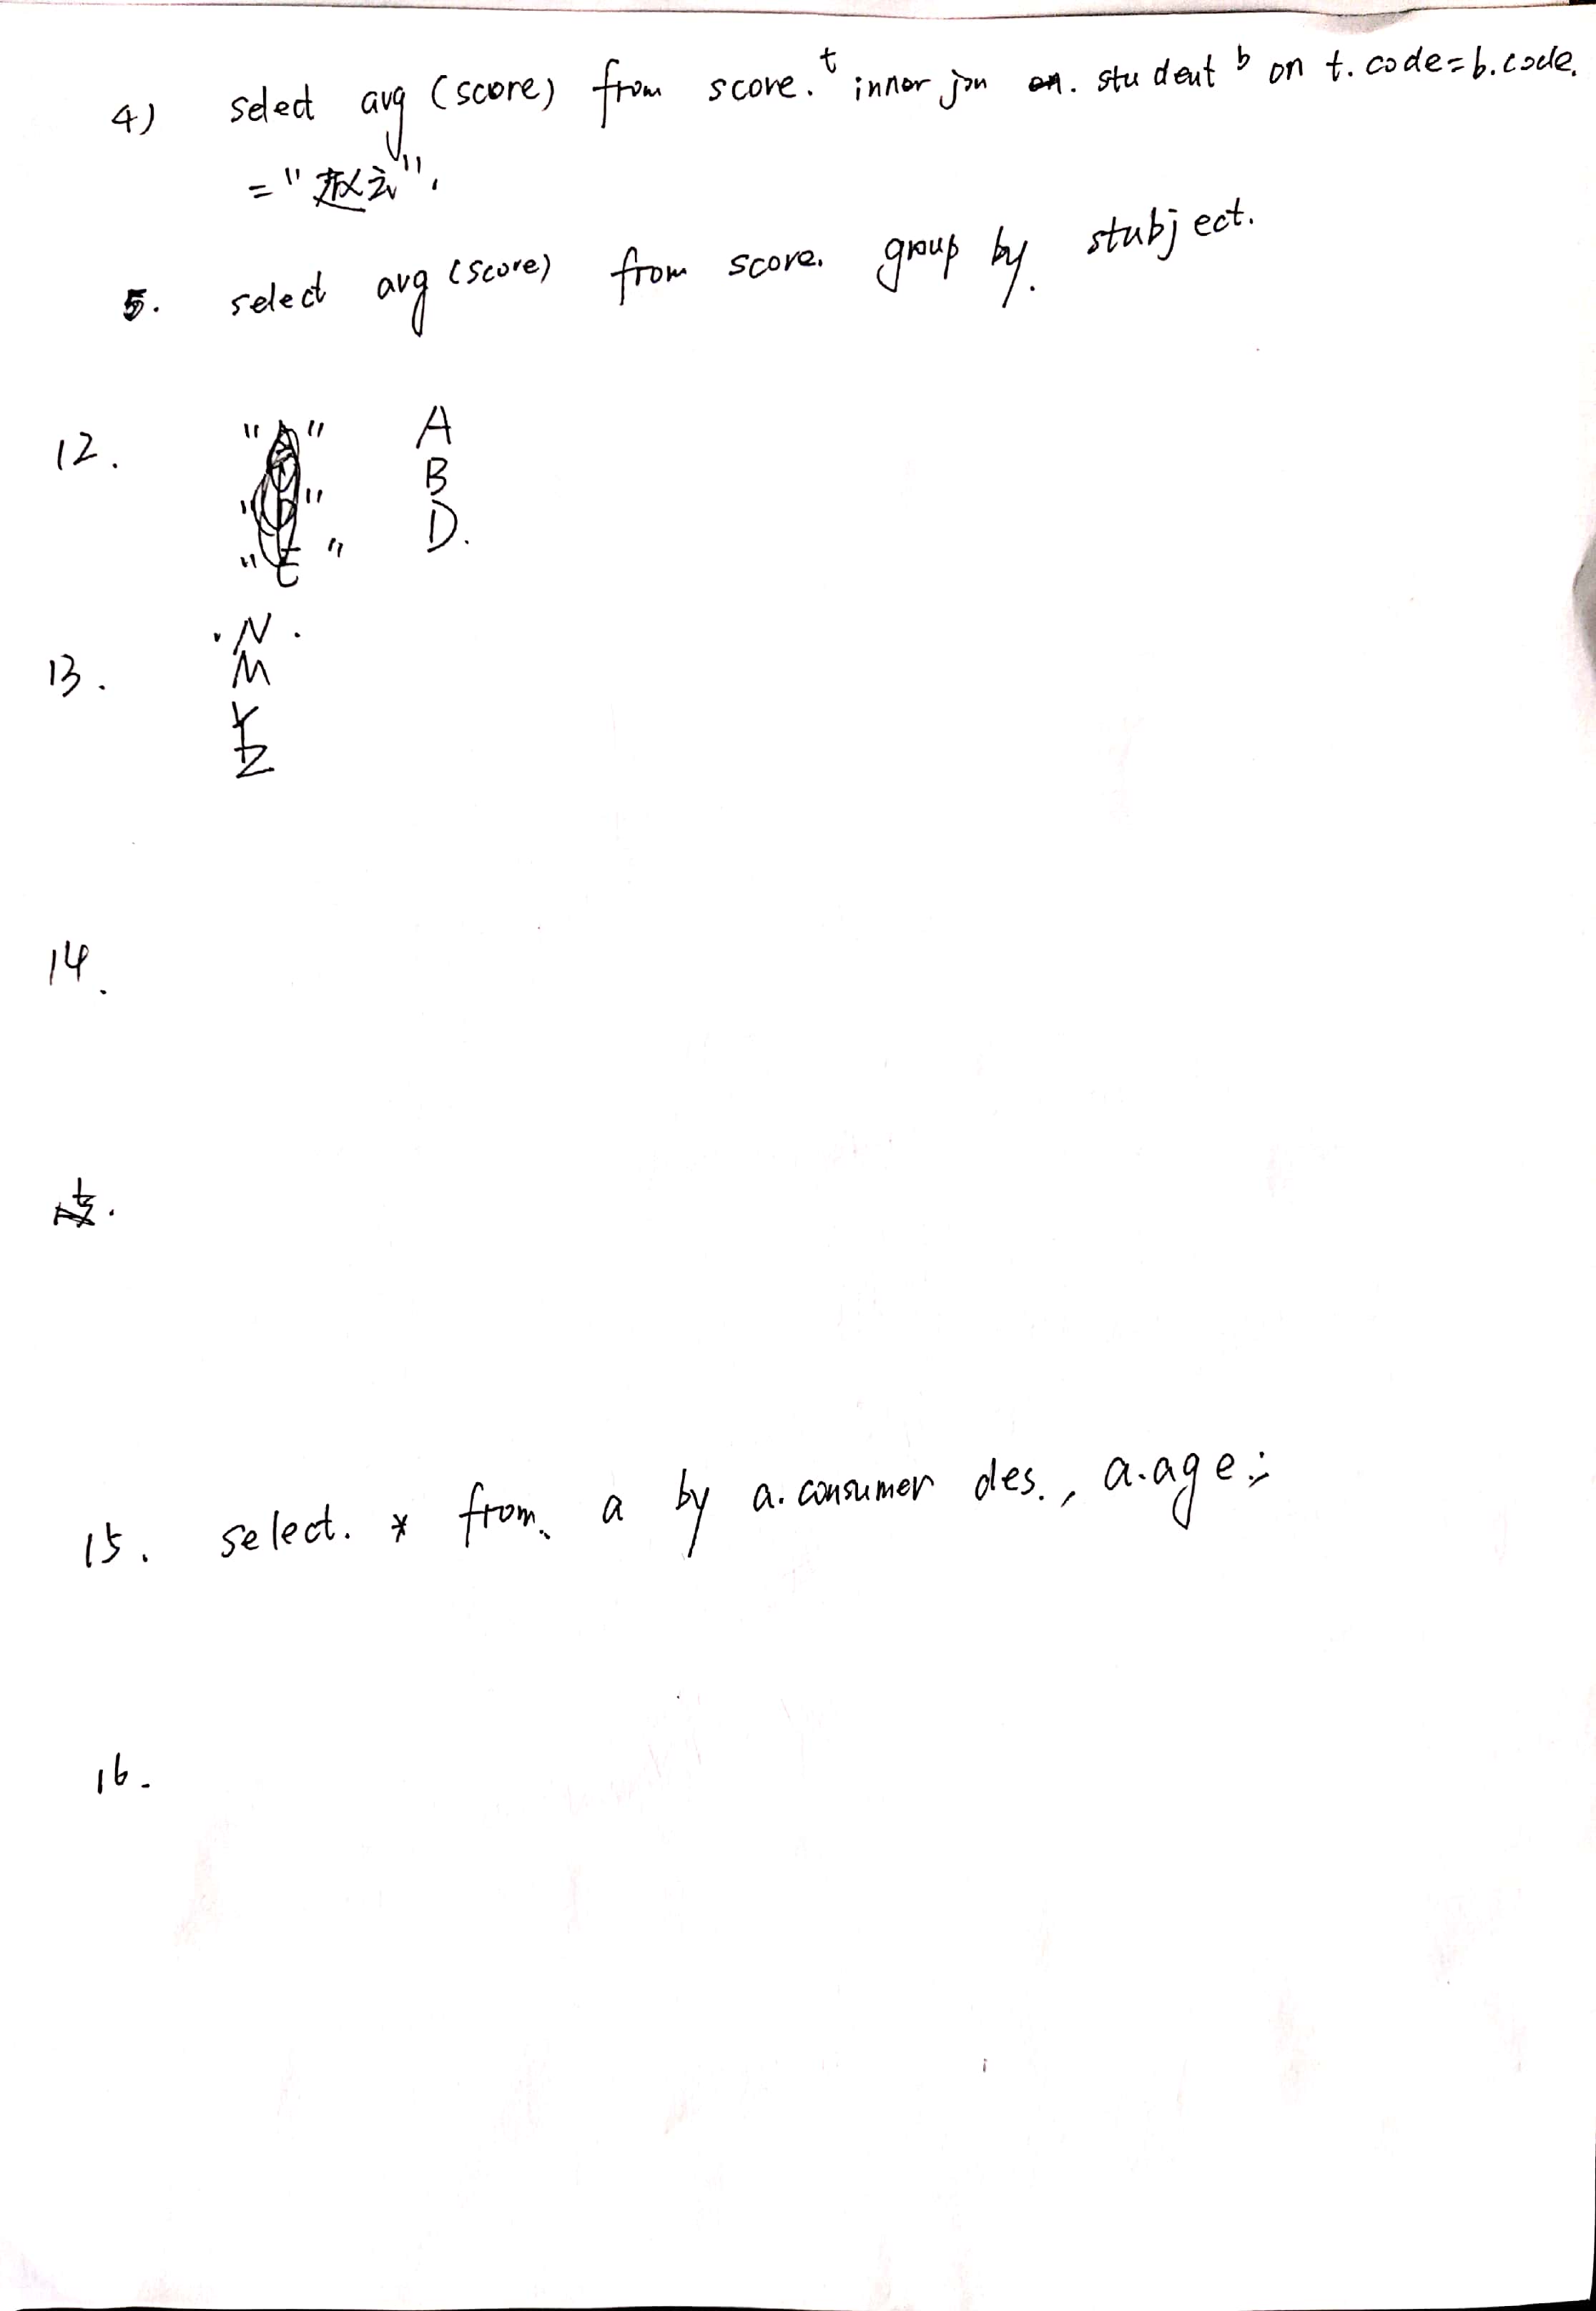 4) select avg (score) from score. t inner join on. student b on t. code=b.code.
="赵云".
5. select avg (score) from score. group by. stubject.
12. " " A
" " B
" " D.
. N .
13. M
Y
Z
14.
15. select. * from. a by a. consumer des., a.age;
16.